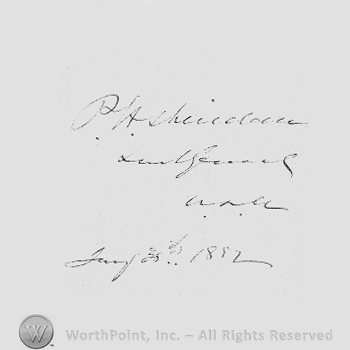 P. H. Sheridan
Lieut General
U.S.A
Jany 30th 1882
W
WorthPoint, Inc. – All Rights Reserved